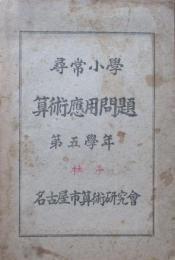 尋常小學
算術應用問題
第五學年
名古屋市算術研究會